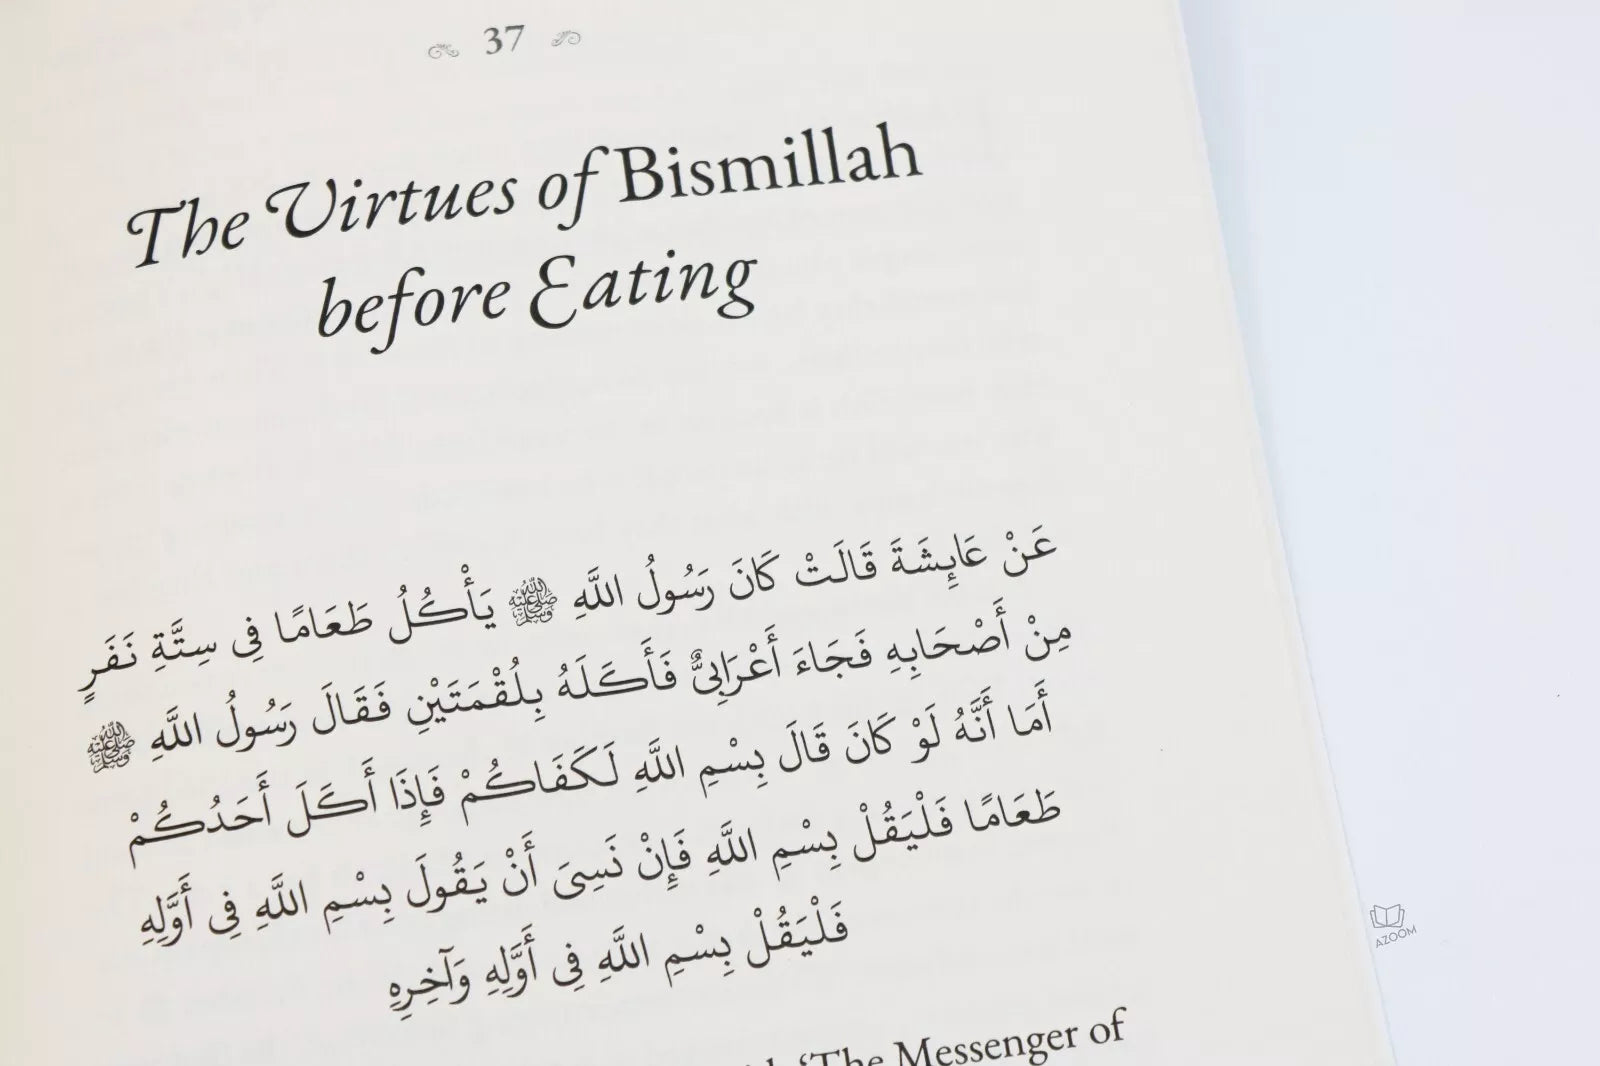 37
The Virtues of Bismillah
before Eating
عَنْ عَايِشَةَ قَالَتْ كَانَ رَسُولُ اللَّهِ ﷺ يَأْكُلُ طَعَامًا فِى سِتَّةِ نَفَرٍ
مِنْ أَصْحَابِهِ فَجَاءَ أَعْرَابِىٌّ فَأَكَلَهُ بِلُقْمَتَيْنِ فَقَالَ رَسُولُ اللَّهِ ﷺ
أَمَا أَنَّهُ لَوْ كَانَ قَالَ بِسْمِ اللَّهِ لَكَفَاكُمْ فَإِذَا أَكَلَ أَحَدُكُمْ
طَعَامًا فَلْيَقُلْ بِسْمِ اللَّهِ فَإِنْ نَسِىَ أَنْ يَقُولَ بِسْمِ اللَّهِ فِى أَوَّلِهِ
فَلْيَقُلْ بِسْمِ اللَّهِ فِى أَوَّلِهِ وَآخِرِهِ
‘The Messenger of
AZOOM